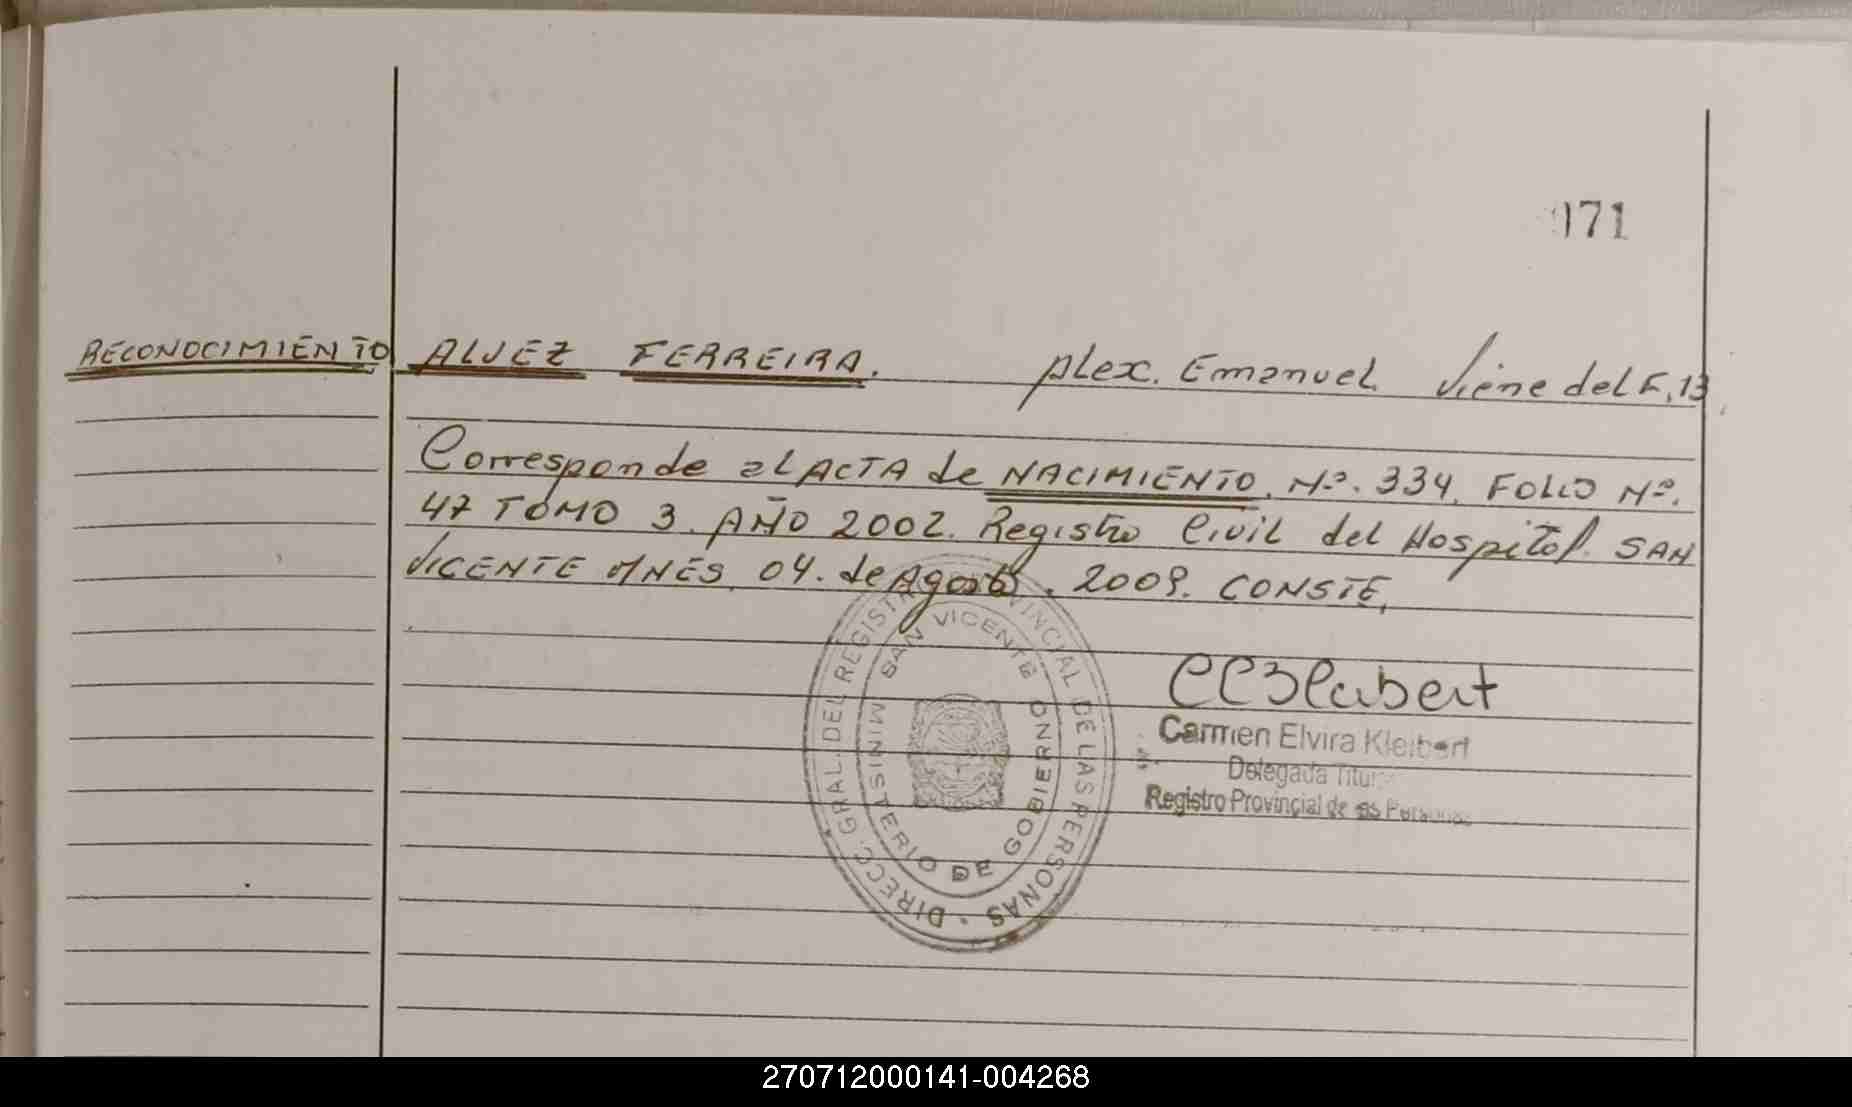 171
RECONOCIMIENTO ALVEZ FERREIRA. Alex. Emanuel. Viene del F. 13
Corresponde al ACTA de NACIMIENTO. Nº. 334. FOLIO Nº.
47 TOMO 3. AÑO 2002. Registro Civil del Hospital. SAN
VICENTE MNES. 04. de Agosto. 2009. CONSTE,
DIRECC. GRAL. DEL REGISTRO PROVINCIAL DE LAS PERSONAS
SAN VICENTE
MINISTERIO DE GOBIERNO
Carmen Elvira Kleibert
Delegada Titular
Registro Provincial de las Personas
270712000141-004268